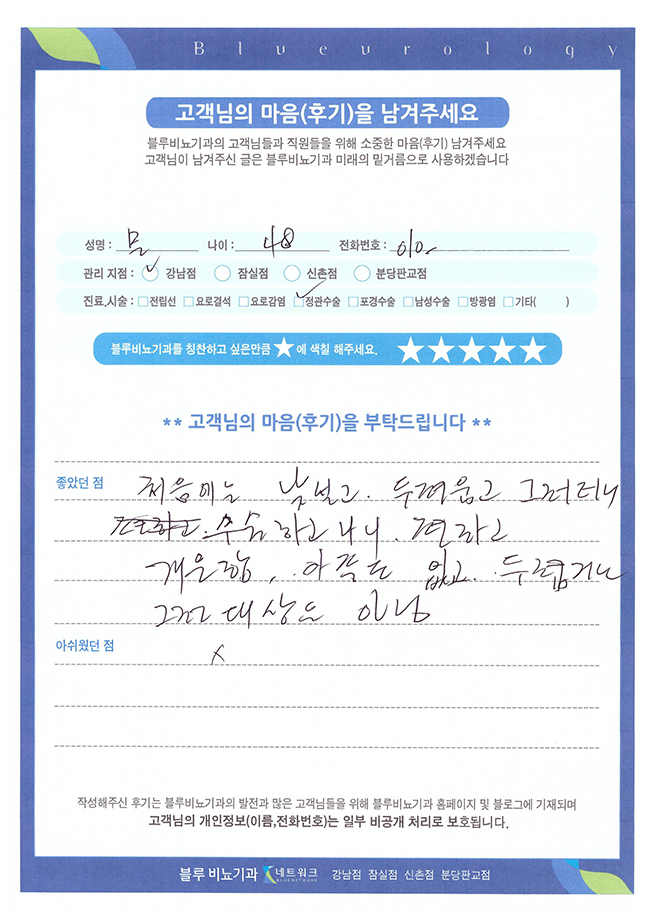 Blueurology
고객님의 마음(후기)을 남겨주세요
블루비뇨기과의 고객님들과 직원들을 위해 소중한 마음(후기) 남겨주세요
고객님이 남겨주신 글은 블루비뇨기과 미래의 밑거름으로 사용하겠습니다
성명 : 문 나이 : 48 전화번호 : 010-
관리 지점 : 강남점 잠실점 신촌점 분당판교점
진료.시술 : 전립선 요로결석 요로감염 정관수술 포경수술 남성수술 방광염 기타( )
블루비뇨기과를 칭찬하고 싶은만큼 ★에 색칠 해주세요. ★★★★★
** 고객님의 마음(후기)을 부탁드립니다 **
좋았던 점 처음에는 낯설고. 두려웁고 그러더니
편하고. 수술하고 나니. 편하고
개운함, 아픔도 없고. 두렵거나
그런 대상은 아님
아쉬웠던 점 x
작성해주신 후기는 블루비뇨기과의 발전과 많은 고객님들을 위해 블루비뇨기과 홈페이지 및 블로그에 기재되며
고객님의 개인정보(이름,전화번호)는 일부 비공개 처리로 보호됩니다.
블루 비뇨기과 네트워크 BLUENETWORK 강남점 잠실점 신촌점 분당판교점